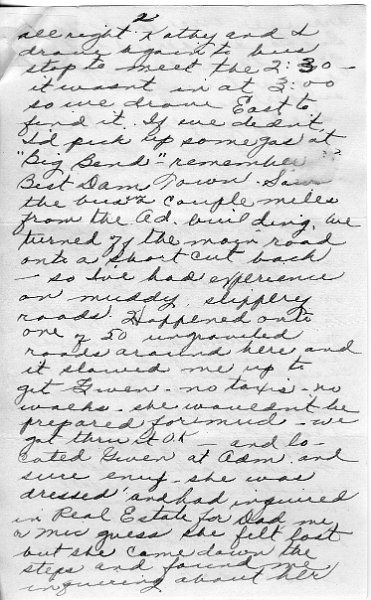 2
all right. Kathy and I
drove again to bus
stop to meet the 2:30 -
it wasn't in at 3:00
so we drove East to
find it. If we didn't,
I'd pick up some gas at
"Big Bend" - remember ??
Best Dam Town. Saw
the bus a couple miles
from the Ad. building. We
turned off the main road
onto a short cut back
- so I've had experience
on muddy, slippery
roads. Happened onto
one of 50 ungraveled
roads around here and
it slowed me up to
get Gwen - no taxis - no
walks - she wouldn't be
prepared for mud - we
got thru it OK - and lo-
cated Gwen at Adm. and
sure enuf - she was
dressed and had inquired
in Real Estate for Dad, me
or Mic guess she felt lost
but she came down the
steps and found me
inquiring about her